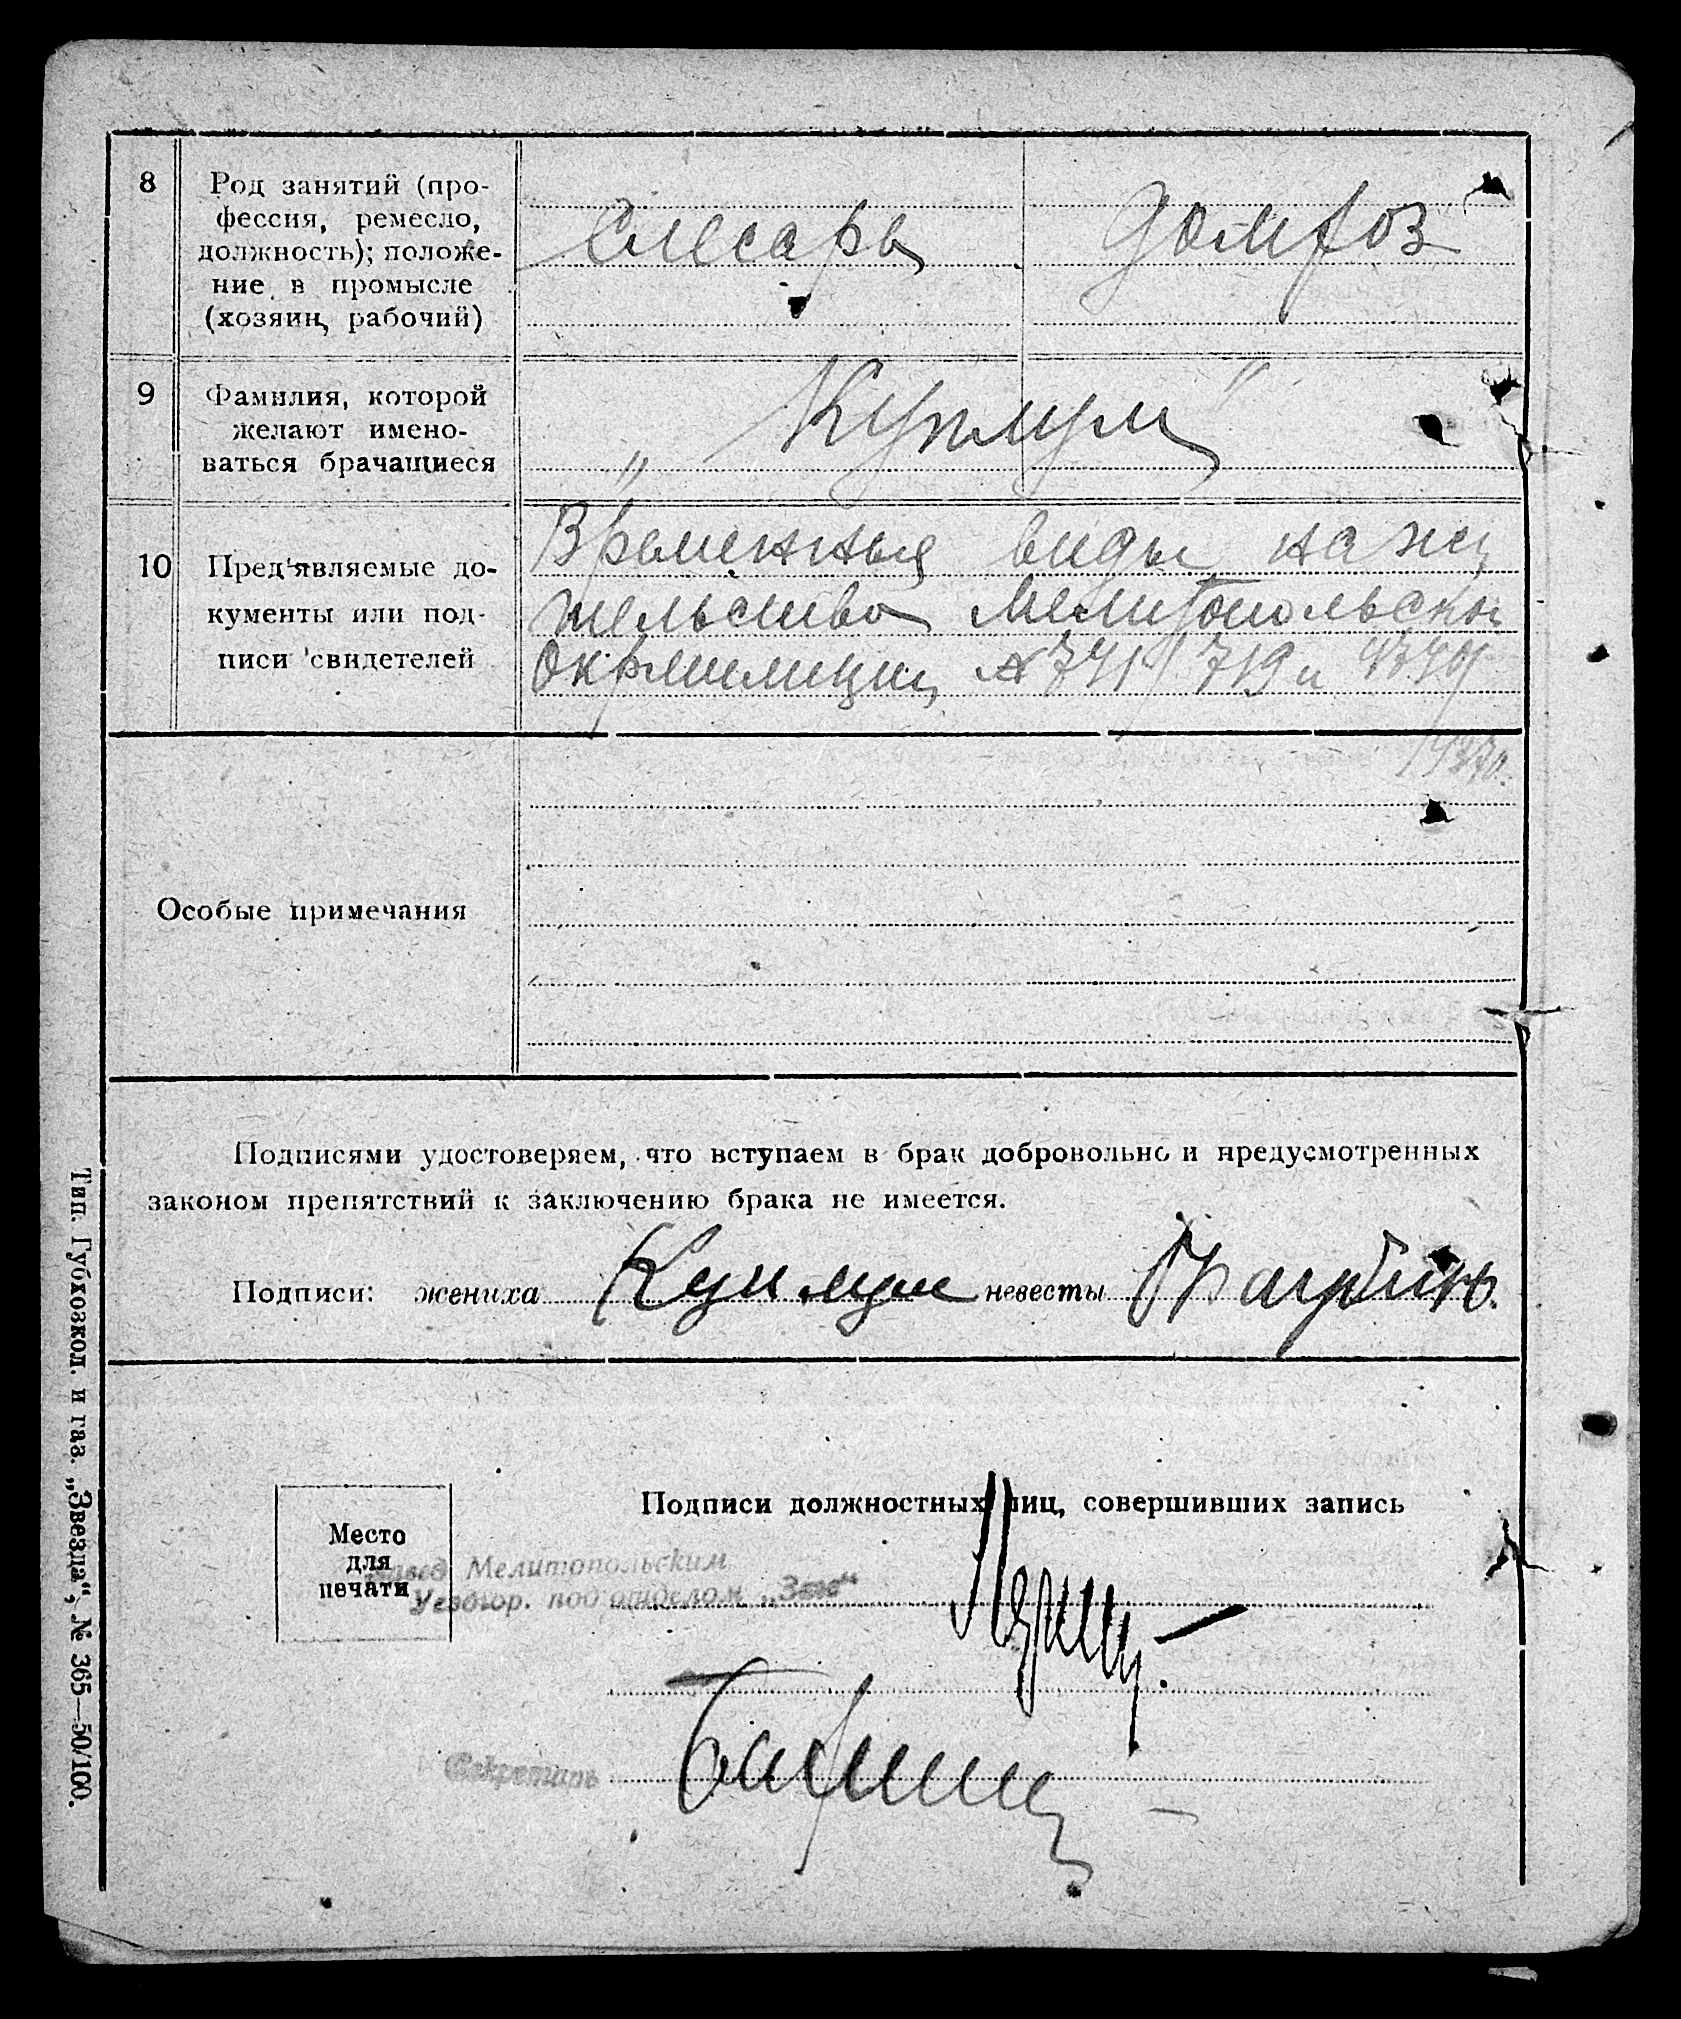 8 Род занятий (про-
фессия, ремесло,
должность); положе-
ние в промысле
(хозяин, рабочий)
Слесарь
домхоз
9 Фамилия, которой
желают имено-
ваться брачащиеся
„Куплум"
10 Пред'являемые до-
кументы или под-
писи свидетелей
Временныя виды на жи
тельство Мелитопольской
Окрмилиции № 741/719 и
Особые примечания
Подписями удостоверяем, что вступаем в брак добровольно и предусмотренных
законом препятствий к заключению брака не имеется.
Подписи: жениха Куплум невесты
Подписи должностных лиц, совершивших запись
Место
для
печати
Завед Мелитопольским
Уездгор. подотделом „Загс"
Секретарь
Тип. Губхозкол. и газ. „Звезда", № 365—50/100.